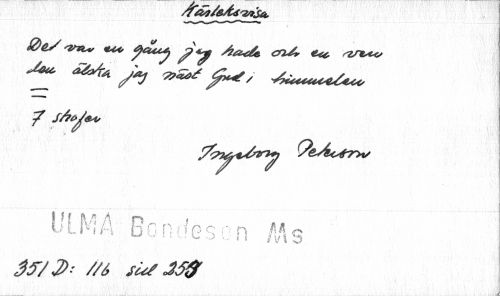 Kärleksvisa
Det var en gång jag hade och en ven
den älska jag näst Gud i himmelen
7 strofer
Ingeborg Peterson
ULMA Bondeson Ms
351 D: 116 sid 259